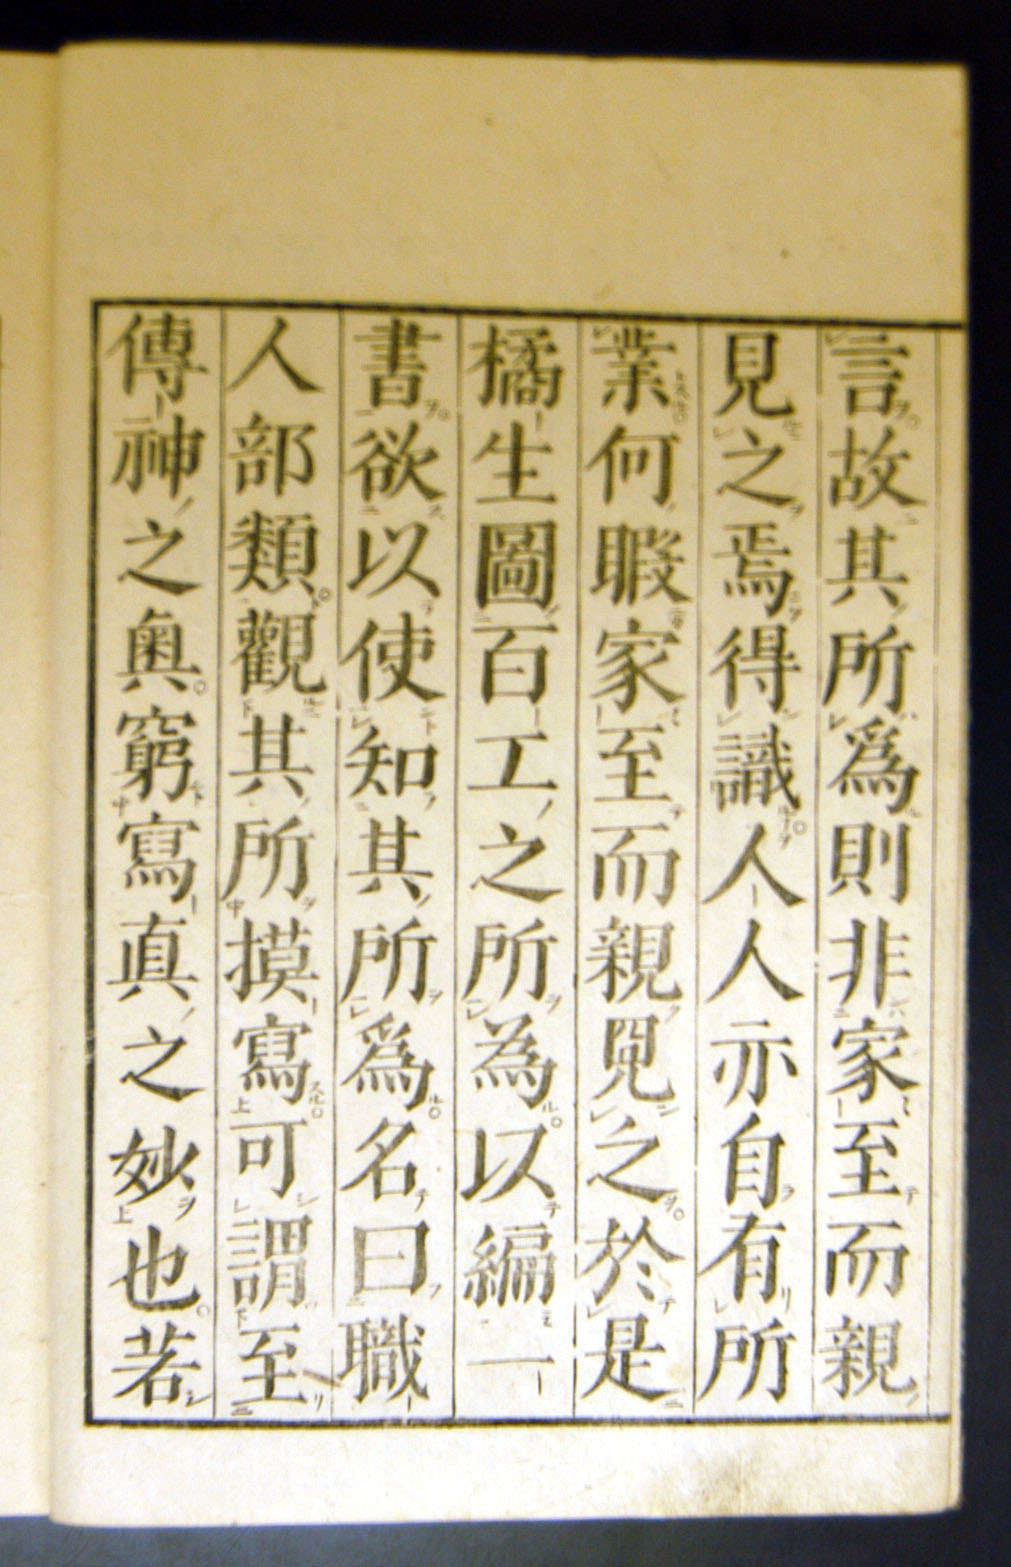 言故其所爲則非家至而親
見之焉得識人人亦自有所
業何暇家至而親見之於是
橘生圖百工之所為以編一
書欲以使知其所爲名曰職
人部類觀其所摸寫可謂至
傳神之奥窮寫真之妙也若